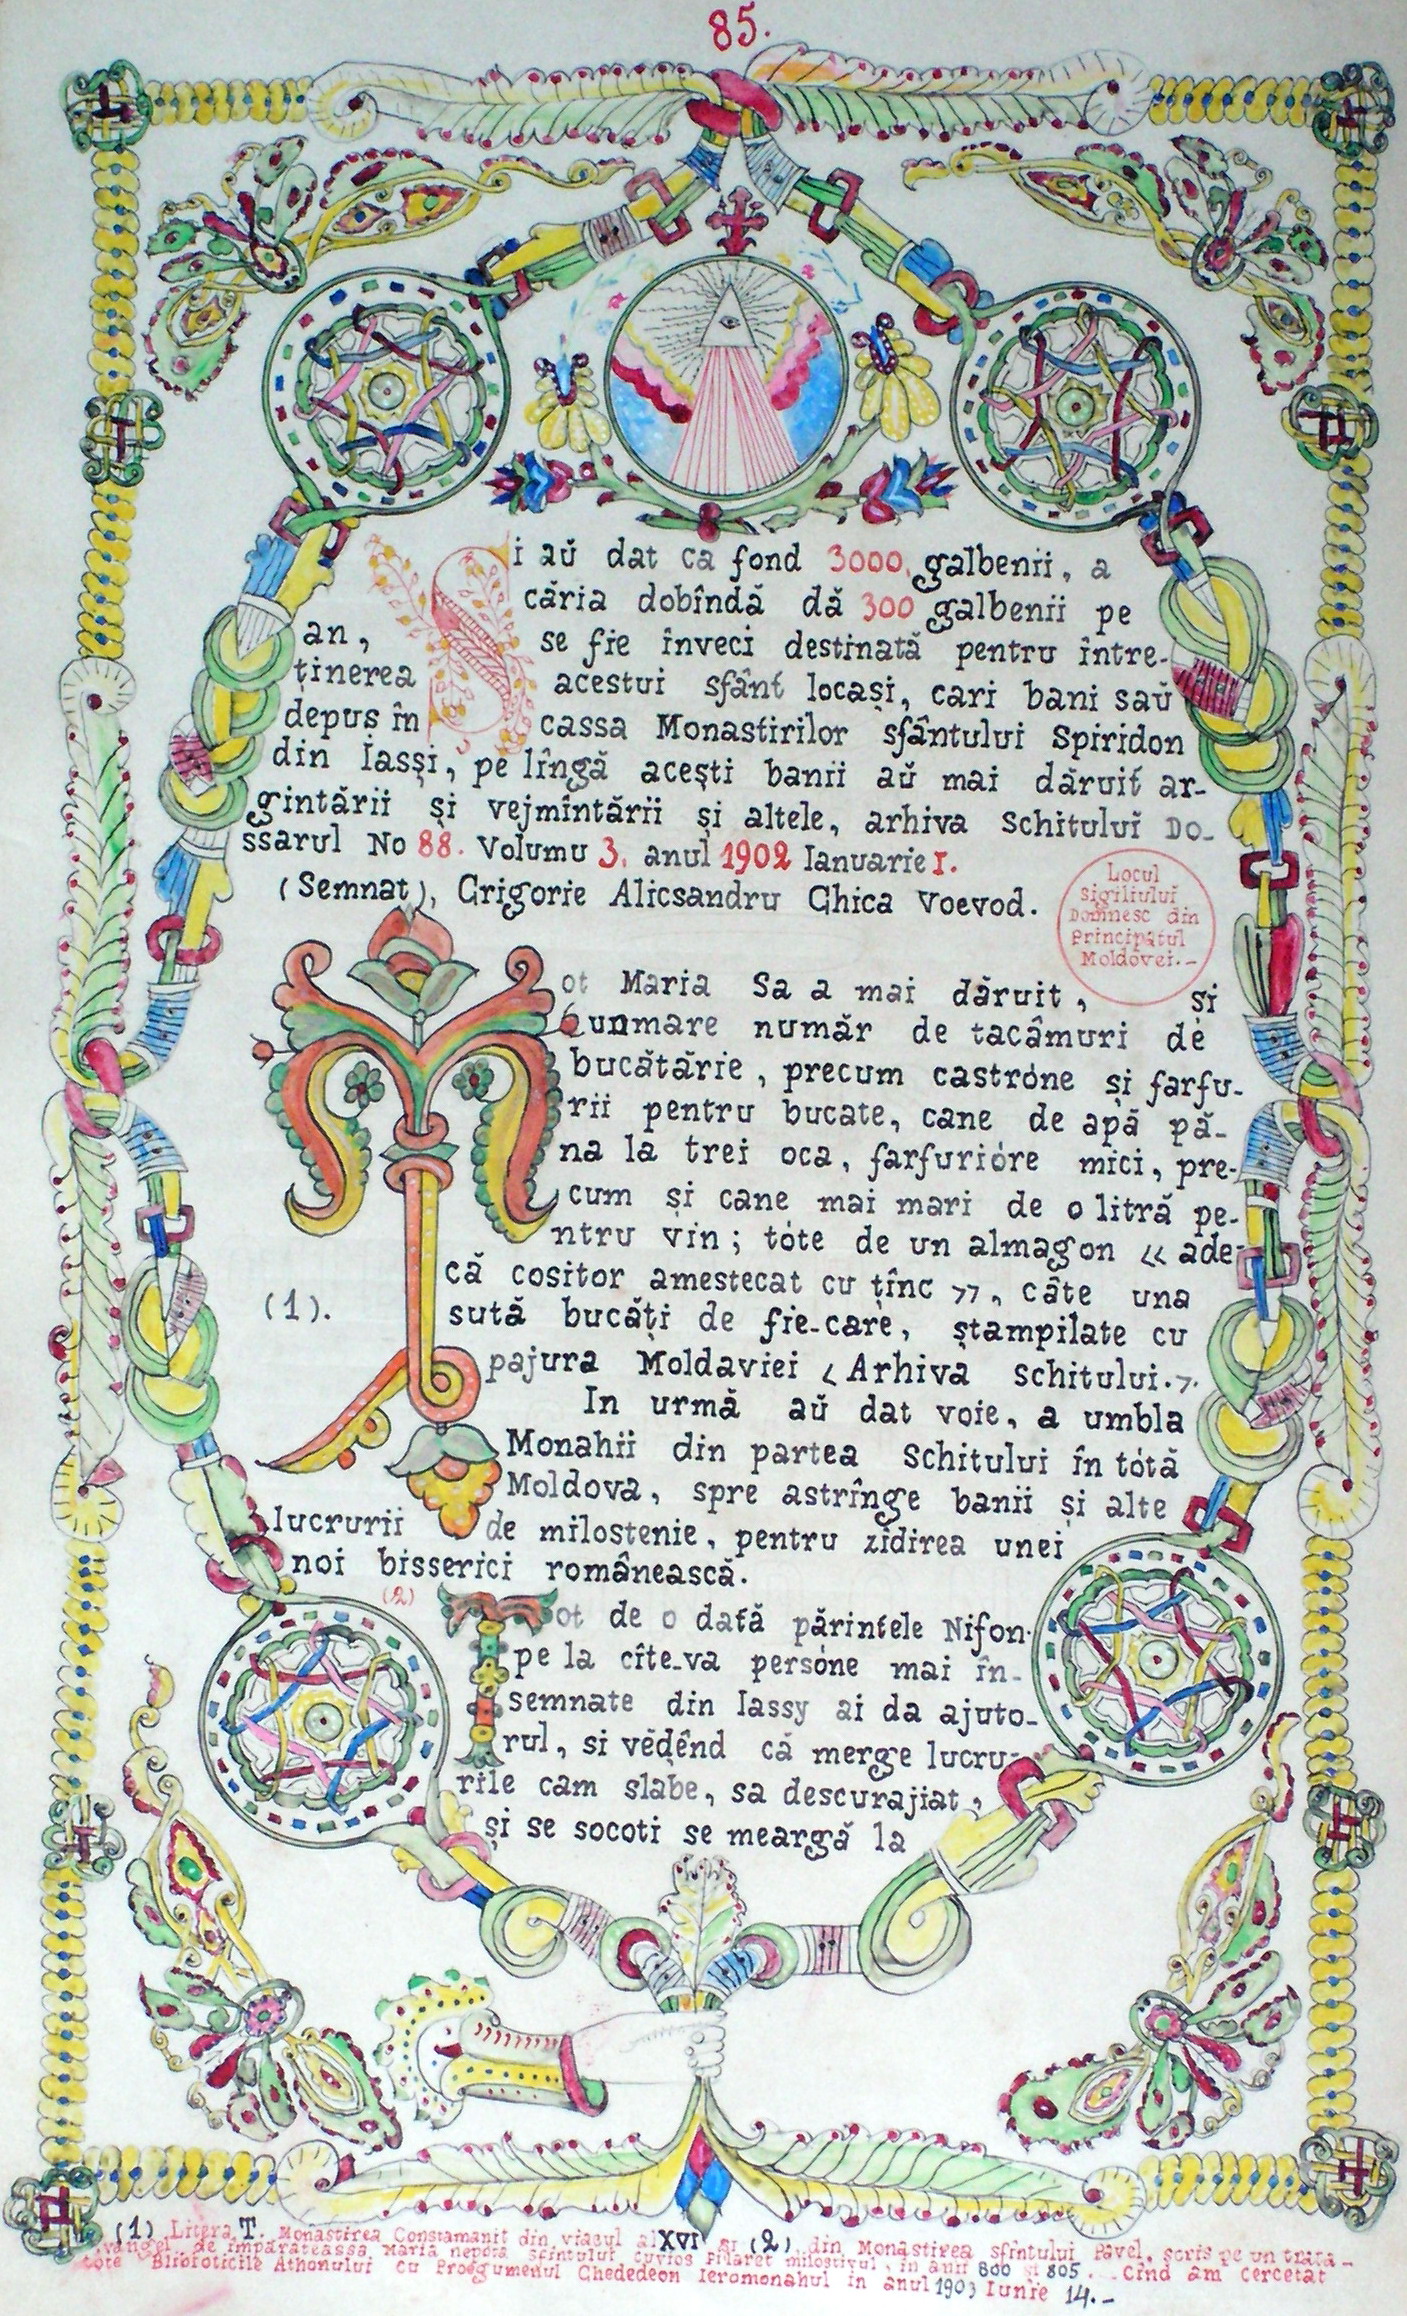 85.
Si aŭ dat ca fond 3000, galbenii, a
căria dobîndă dă 300 galbenii pe
an, se fie înveci destinată pentru între-
ținerea acestui sfânt locași, cari bani saŭ
depus în cassa Monastirilor sfântului Spiridon
din Iassi, pe lîngă acești banii aŭ mai dăruit ar-
gintării și vejmîntării și altele, arhiva Schitului Do-
ssarul No 88. Volumu 3, anul 1902 Ianuarie 1.
(Semnat), Grigorie Alicsandru Ghica Voevod.
Locul
Sigiliului
Domnesc din
Principatul
Moldovei.-
Tot Maria Sa a mai dăruit, și
unmare număr de tacâmuri de
bucătărie, precum castróne și farfu-
rii pentru bucate, cane de apă pă-
na la trei oca, farfurióre mici, pre-
cum și cane mai mari de o litră pe-
ntru vin; tóte de un almagon « ade-
că cositor amestecat cu ținc », câte una
(1). sută bucăți de fie-care, ștampilate cu
pajura Moldaviei < Arhiva Schitului. >.
In urmă aŭ dat voie, a umbla
Monahii din partea Schitului în tótă
Moldova, spre astrînge banii și alte
lucrurii de milostenie, pentru zidirea unei
noi bisserici românească.
(2)
Tot de o dată părintele Nifon
pe la cîte-va persóne mai în-
semnate din Iassy ai da ajuto-
rul, si vĕdênd că merge lucru-
rile cam slabe, sa descurajiat,
și se socoti se meargă la
(1) Litera T. Monastirea Constamanit din viacul al XVI și (2) din Monastirea sfintului Pavel, scris pe un trată-
vangel de împărateassa Maria nepóta sfintului cuvios Filaret milostivul, in anii 800 și 805. Cînd am cercetat
tóte Bliofoticile Athonului cu Proegumenul Ghededeon Ieromonahul in anul 1903 Iunie 14.-